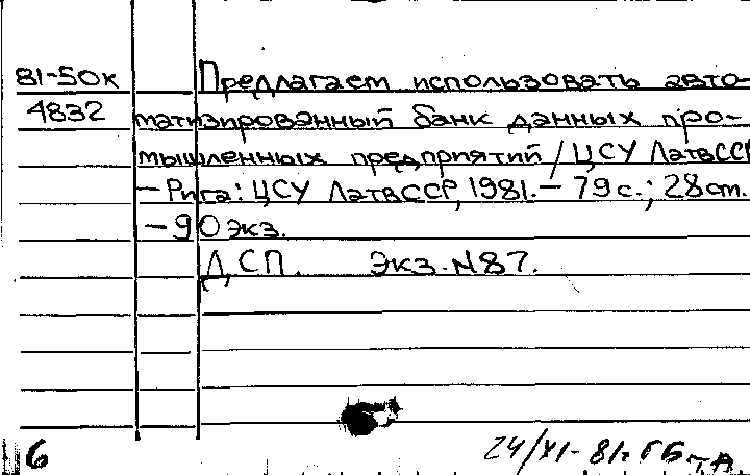 81-50к Предлагаем использовать авто-
4832 матизированный банк данных про-
мышленных предприятий / ЦСУ ЛатвССР
– Рига: ЦСУ ЛатвССР, 1981. – 79 с.; 28 см.
– 90 экз.
ДСП. Экз. N87.
6
24/XI-81г.